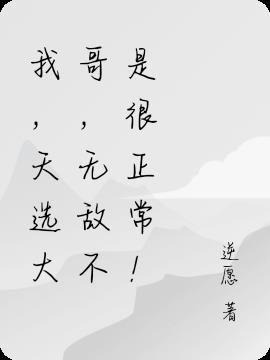 我，天选大
哥，无敌不
是很正常！
逆愿 著